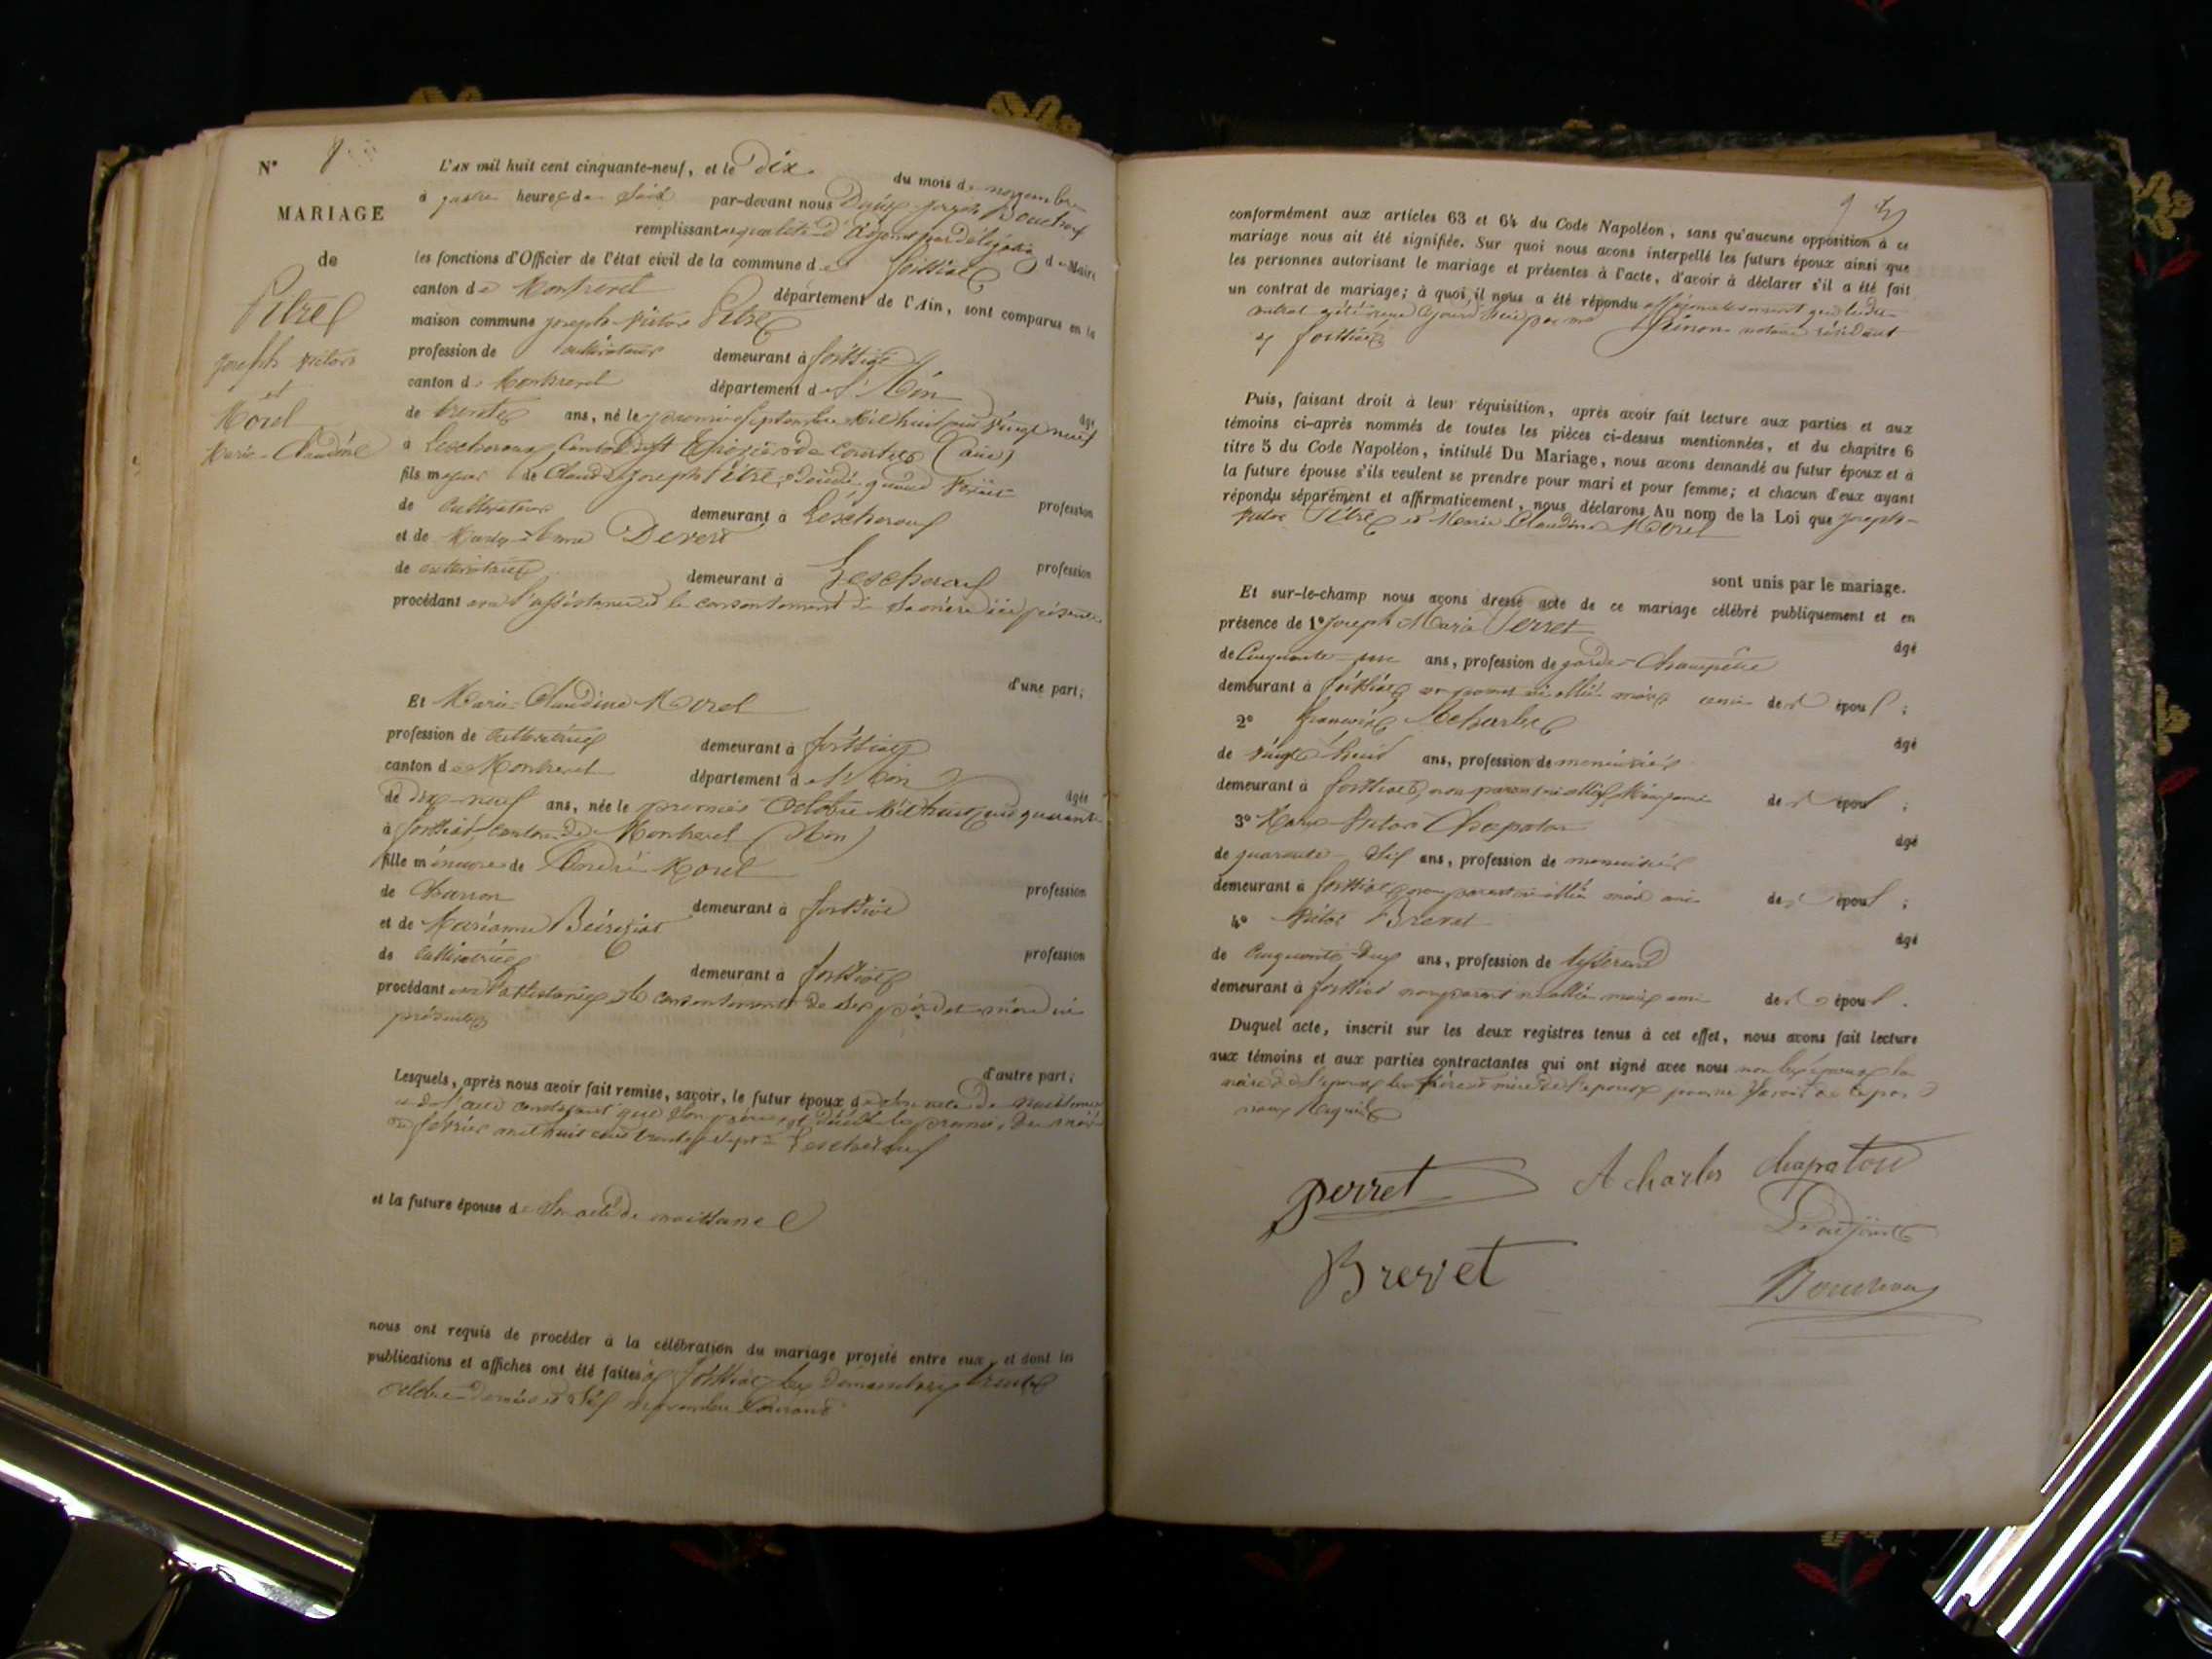 N° 9
MARIAGE
de
Pitre
Joseph Victor
et
Morel
Marie-Claudine
L'AN mil huit cent cinquante-neuf, et le Dix du mois de novembre
à quatre heures du Soir par-devant nous Joseph
remplissant en qualité d'adjoint par délégation du Maire
les fonctions d'Officier de l'état civil de la commune de foissiat
canton de Montrevel département de l'Ain, sont comparus en la
maison commune joseph-Victor Pitre
profession de cultivateur demeurant à foissiat
canton de Montrevel département de l'Ain
âgé
de trente ans, né le premier septembre Mil huit cent vingt neuf
à Lescheroux, Canton de St Trivier de Courtes (Ain)
fils majeur de Claude joseph Pitre, décédé, quand vivait
profession
de cultivateur demeurant à Lescheroux
et de Anne Devert
profession
de cultivatrice demeurant à Lescheroux
procédant avec l'assistance et le consentement de sa mère ici présente
d'une part;
Et Marie-Claudine Morel
profession de cultivatrice demeurant à foissiat
canton de Montrevel département de l'Ain
âgée
de dix-neuf ans, née le premier Octobre Mil huit cent quarante
à foissiat, canton de Montrevel (Ain)
fille mineure de André Morel
profession
de Charron demeurant à foissiat
et de Marianne
profession
de cultivatrice demeurant à foissiat
procédant avec l'assistance et le consentement de ses père et mère ici
présents
d'autre part;
Lesquels, après nous avoir fait remise, savoir, le futur époux de son acte de naissance
et de l'acte constatant que son père est décédé le premier du mois
de février mil huit cent trente sept à Lescheroux
et la future épouse de Son acte de naissance
nous ont requis de procéder à la célébration du mariage projeté entre eux, et dont les
publications et affiches ont été faites à foissiat les dimanches trente
octobre dernier et Six novembre Courant
conformément aux articles 63 et 64 du Code Napoléon, sans qu'aucune opposition à ce
mariage nous ait été signifiée. Sur quoi nous avons interpellé les futurs époux ainsi que
les personnes autorisant le mariage et présentes à l'acte, d'avoir à déclarer s'il a été fait
un contrat de mariage; à quoi il nous a été répondu affirmativement que ledit
contrat a été reçu aujourd'hui par me notaire résidant
à foissiat
Puis, faisant droit à leur réquisition, après avoir fait lecture aux parties et aux
témoins ci-après nommés de toutes les pièces ci-dessus mentionnées, et du chapitre 6
titre 5 du Code Napoléon, intitulé Du Mariage, nous avons demandé au futur époux et à
la future épouse s'ils veulent se prendre pour mari et pour femme; et chacun d'eux ayant
répondu séparément et affirmativement, nous déclarons Au nom de la Loi que joseph-
Victor Pitre et Marie-Claudine Morel
sont unis par le mariage.
Et sur-le-champ nous avons dressé acte de ce mariage célébré publiquement et en
présence de 1° joseph Marie Perret
âgé
de Cinquante-un ans, profession de garde-Champêtre
demeurant à foissiat non parent ni allié mais ami de l' époux ;
2° Acharles
âgé
de vingt huit ans, profession de menuisier
demeurant à foissiat, non parent ni allié, mais ami de l' époux ;
3° Victor Chapaton
âgé
de quarante Six ans, profession de menuisier
demeurant à foissiat non parent ni allié mais ami de l' époux ;
4° Victor Brevet
âgé
de Cinquante-deux ans, profession de tisserand
demeurant à foissiat non parent ni allié mais ami de l' époux .
Duquel acte, inscrit sur les deux registres tenus à cet effet, nous avons fait lecture
aux témoins et aux parties contractantes qui ont signé avec nous non les époux la
mère de l'époux les père et mère de l'épouse pour ne savoir de ce par
nous requis
Perret
Acharles
chapaton
L'adjoint
Brevet